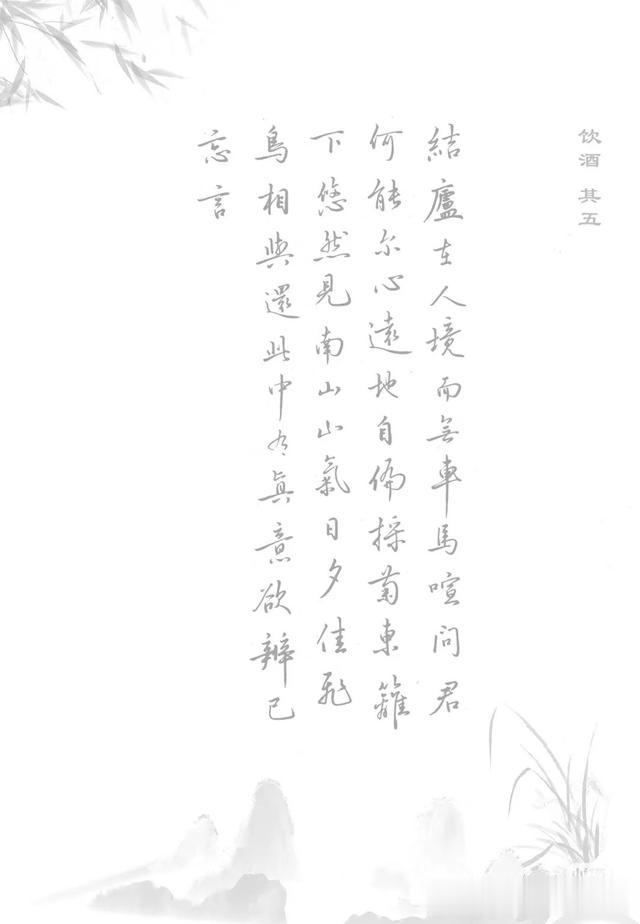 饮酒 其五
結廬在人境而無車馬喧問君
何能尔心遠地自偏採菊東籬
下悠然見南山山氣日夕佳飛
鳥相與還此中有真意欲辨已
忘言